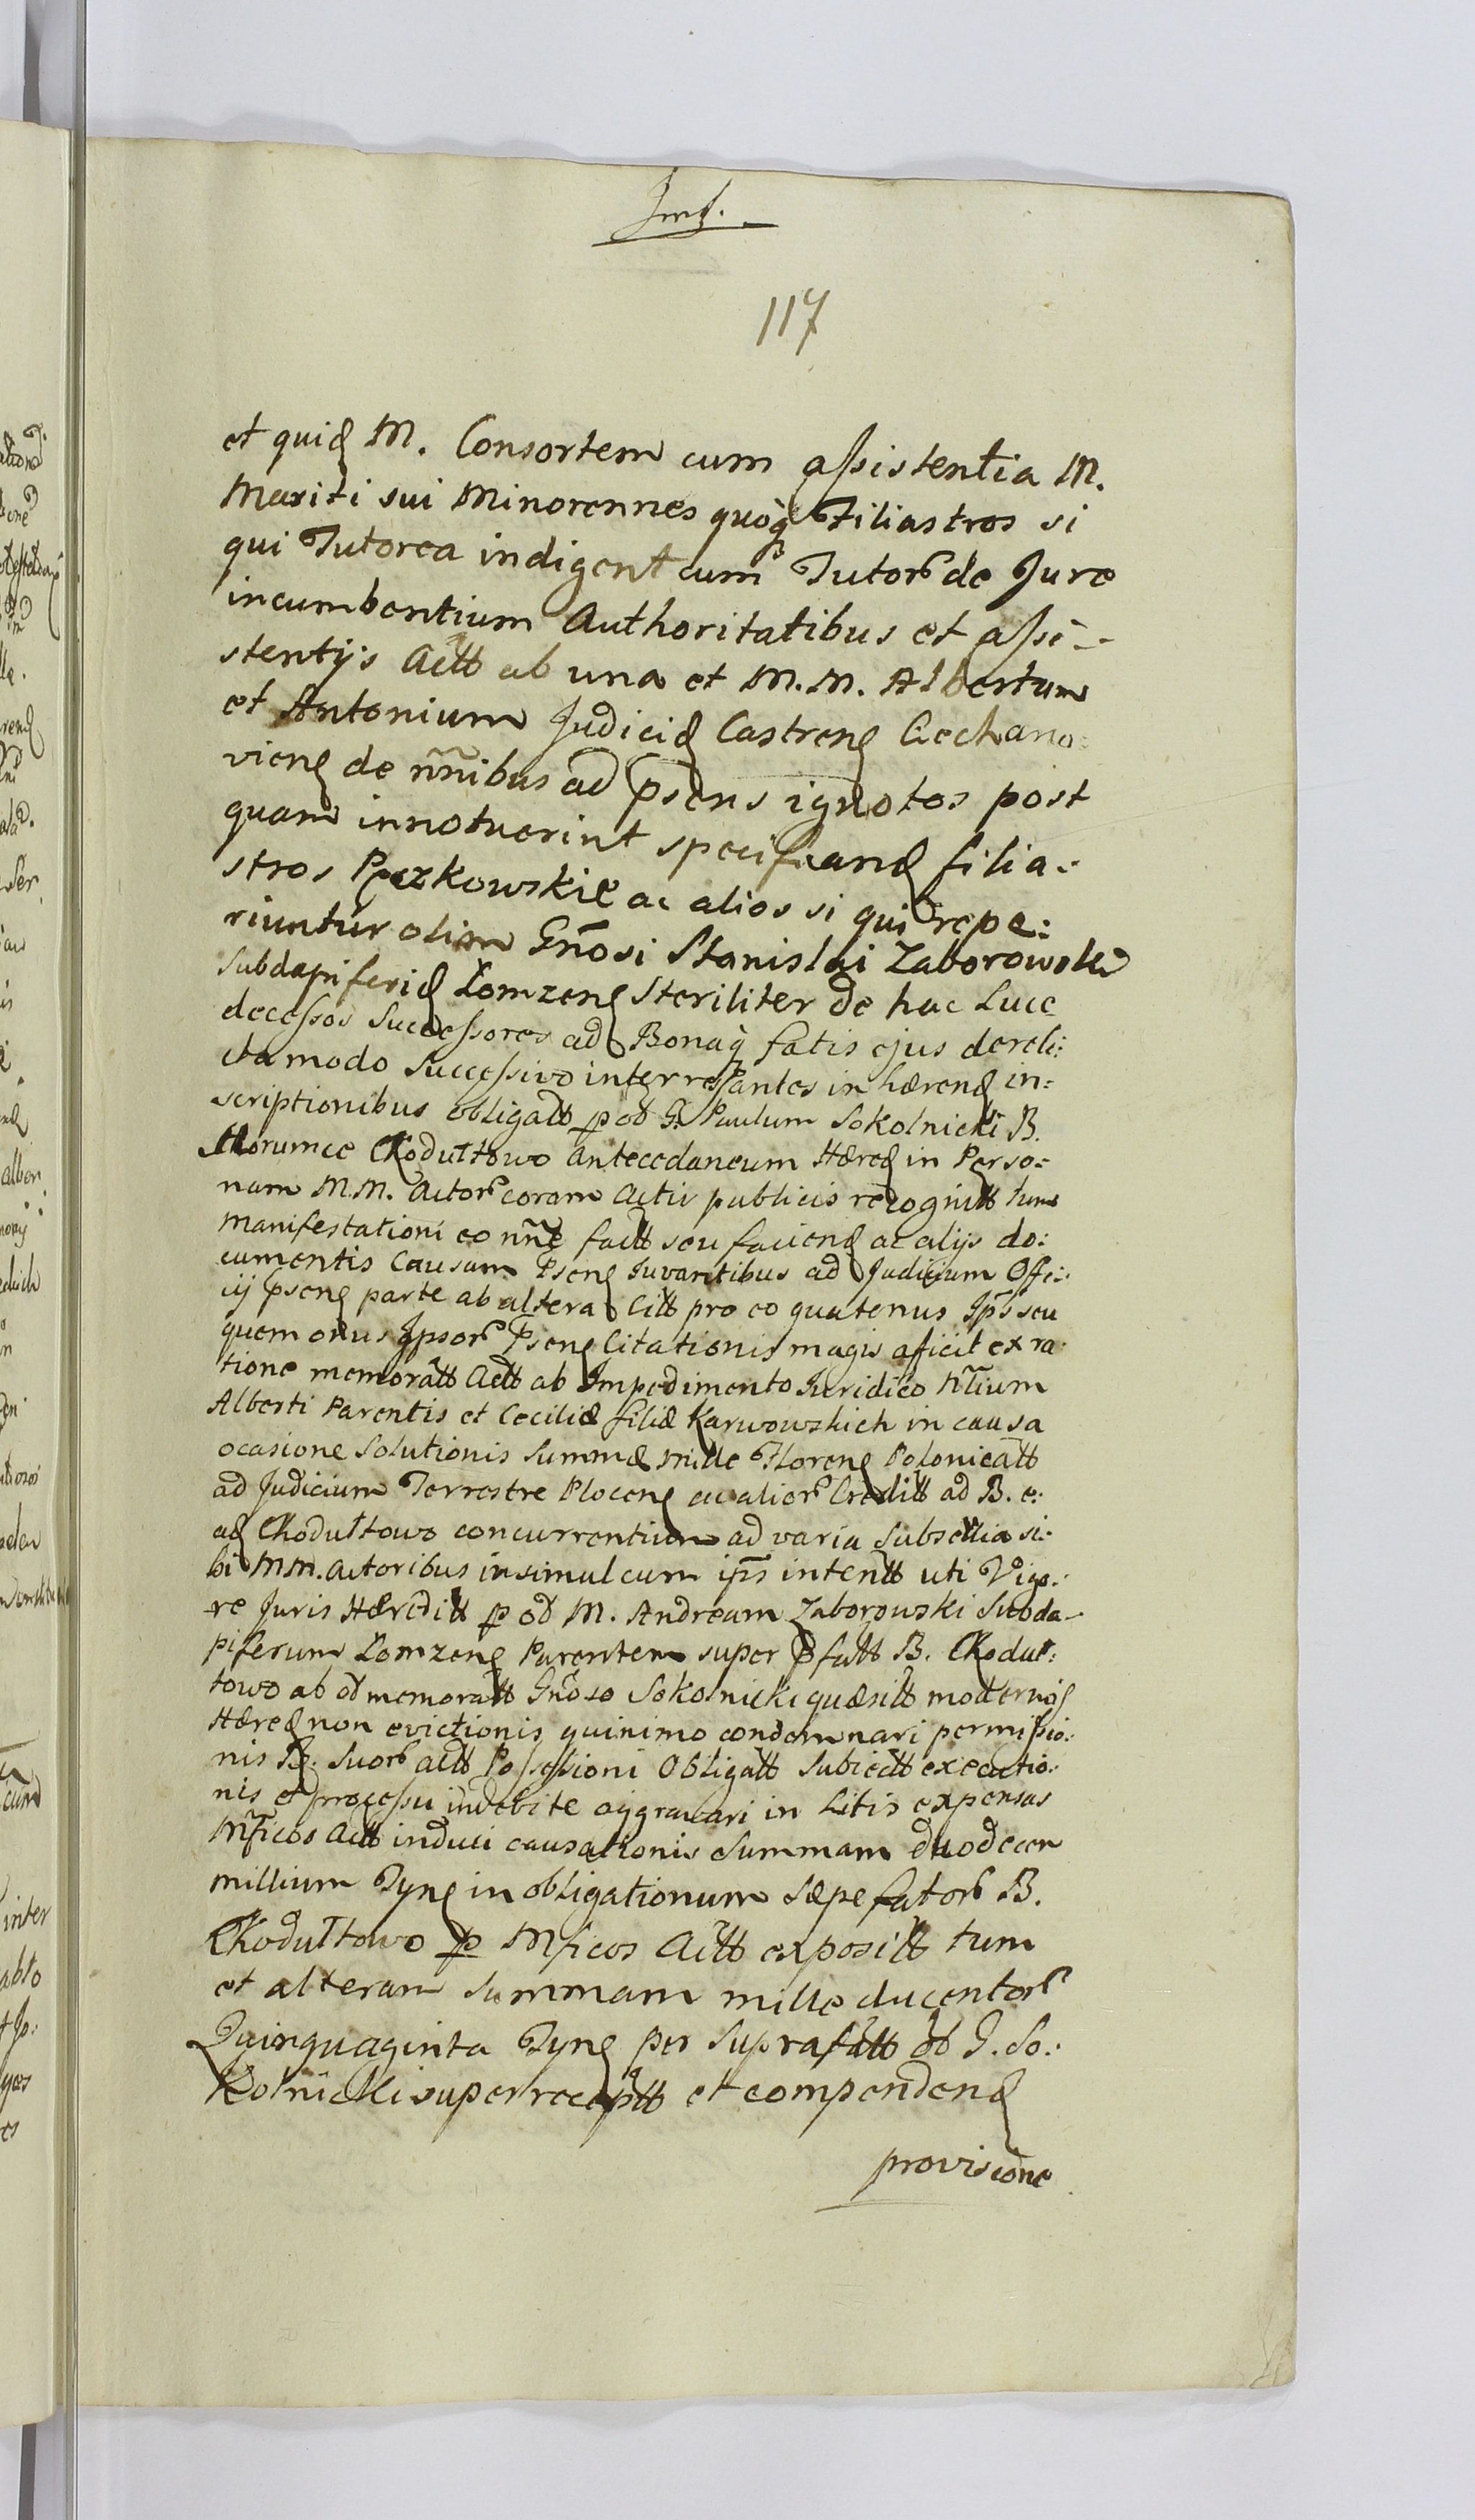 117
et quid M. Consortem cum assistentia M.
Mariti sui Minorennes quoq Filiastros si
qui Tutorea indigent cum Tutor de Jure
incumbentium Authoritatibus et assi-
stentijs Actt ab una et M. M. Albertum
et Antonium Judicid Castren Ciechano:
vien de nñibus ad psens ignotos post
quam innotuerint specificand filia:
stros ac alios si qui repe:
riuntur olim Gñosi Stanislai Zaborowski
Subdapiferid Łomzen Steriliter de hac Luce
decessos Successores ad Bonaq fatis ejus dereli:
cta modo Successivo interressantes in hærend in:
scriptionibus obligatt p od G. Paulum Sokolnicki B.
Chodułtowo Antecedaneum Hæred in Perso:
nam M.M. Actor coram Actis publicis recognitt tum
Manifestationi eo nñe factt seu faciend ac alijs do:
cumentis Causam Psen Juvantibus ad Judicium Offi:
cij psen parte ab altera Citt pro eo quatenus Ips seu
quem onus Ipsor Psen Citationis magis aficit ex ra:
tione memoratt Actt ab Impedimento Juridico
Alberti Parentis et Ceciliæ filiæ Karwowskich in causa
ocasione Solutionis Summæ mille Floren Polonicatt
ad Judicium Terrestre Plocen ac alior Creditt ad B. e:
ad Chodułtowo concurrentium ad varia Subsellia si:
bi MM. Actoribus insimul cum ips intentt uti Vigo:
re Juris Hæreditt p od M. Andream Zaborowski Subda-
piferum Łomzen Parentem super pfatt B. Choduł:
towo ab od memoratt Gñoso Sokolnicki quæsitt modernos
Hæred non evictionis quinimo condemnari permissio:
nis B. Suor actt Possessioni Obligatt Subiectt executio:
nis et processu indebite aggravari in Litis expensas
Mficos Actt induci causationis Summam duodecem
millium Tyn in obligationum Sæpefator B.
Chodułtowo p Mficos Actt expositt tum
et alteram summam mille ducentor
Quinquaginta Tyn per Suprafatt od G. So:
kolnicki super receptt et compendend
provisione